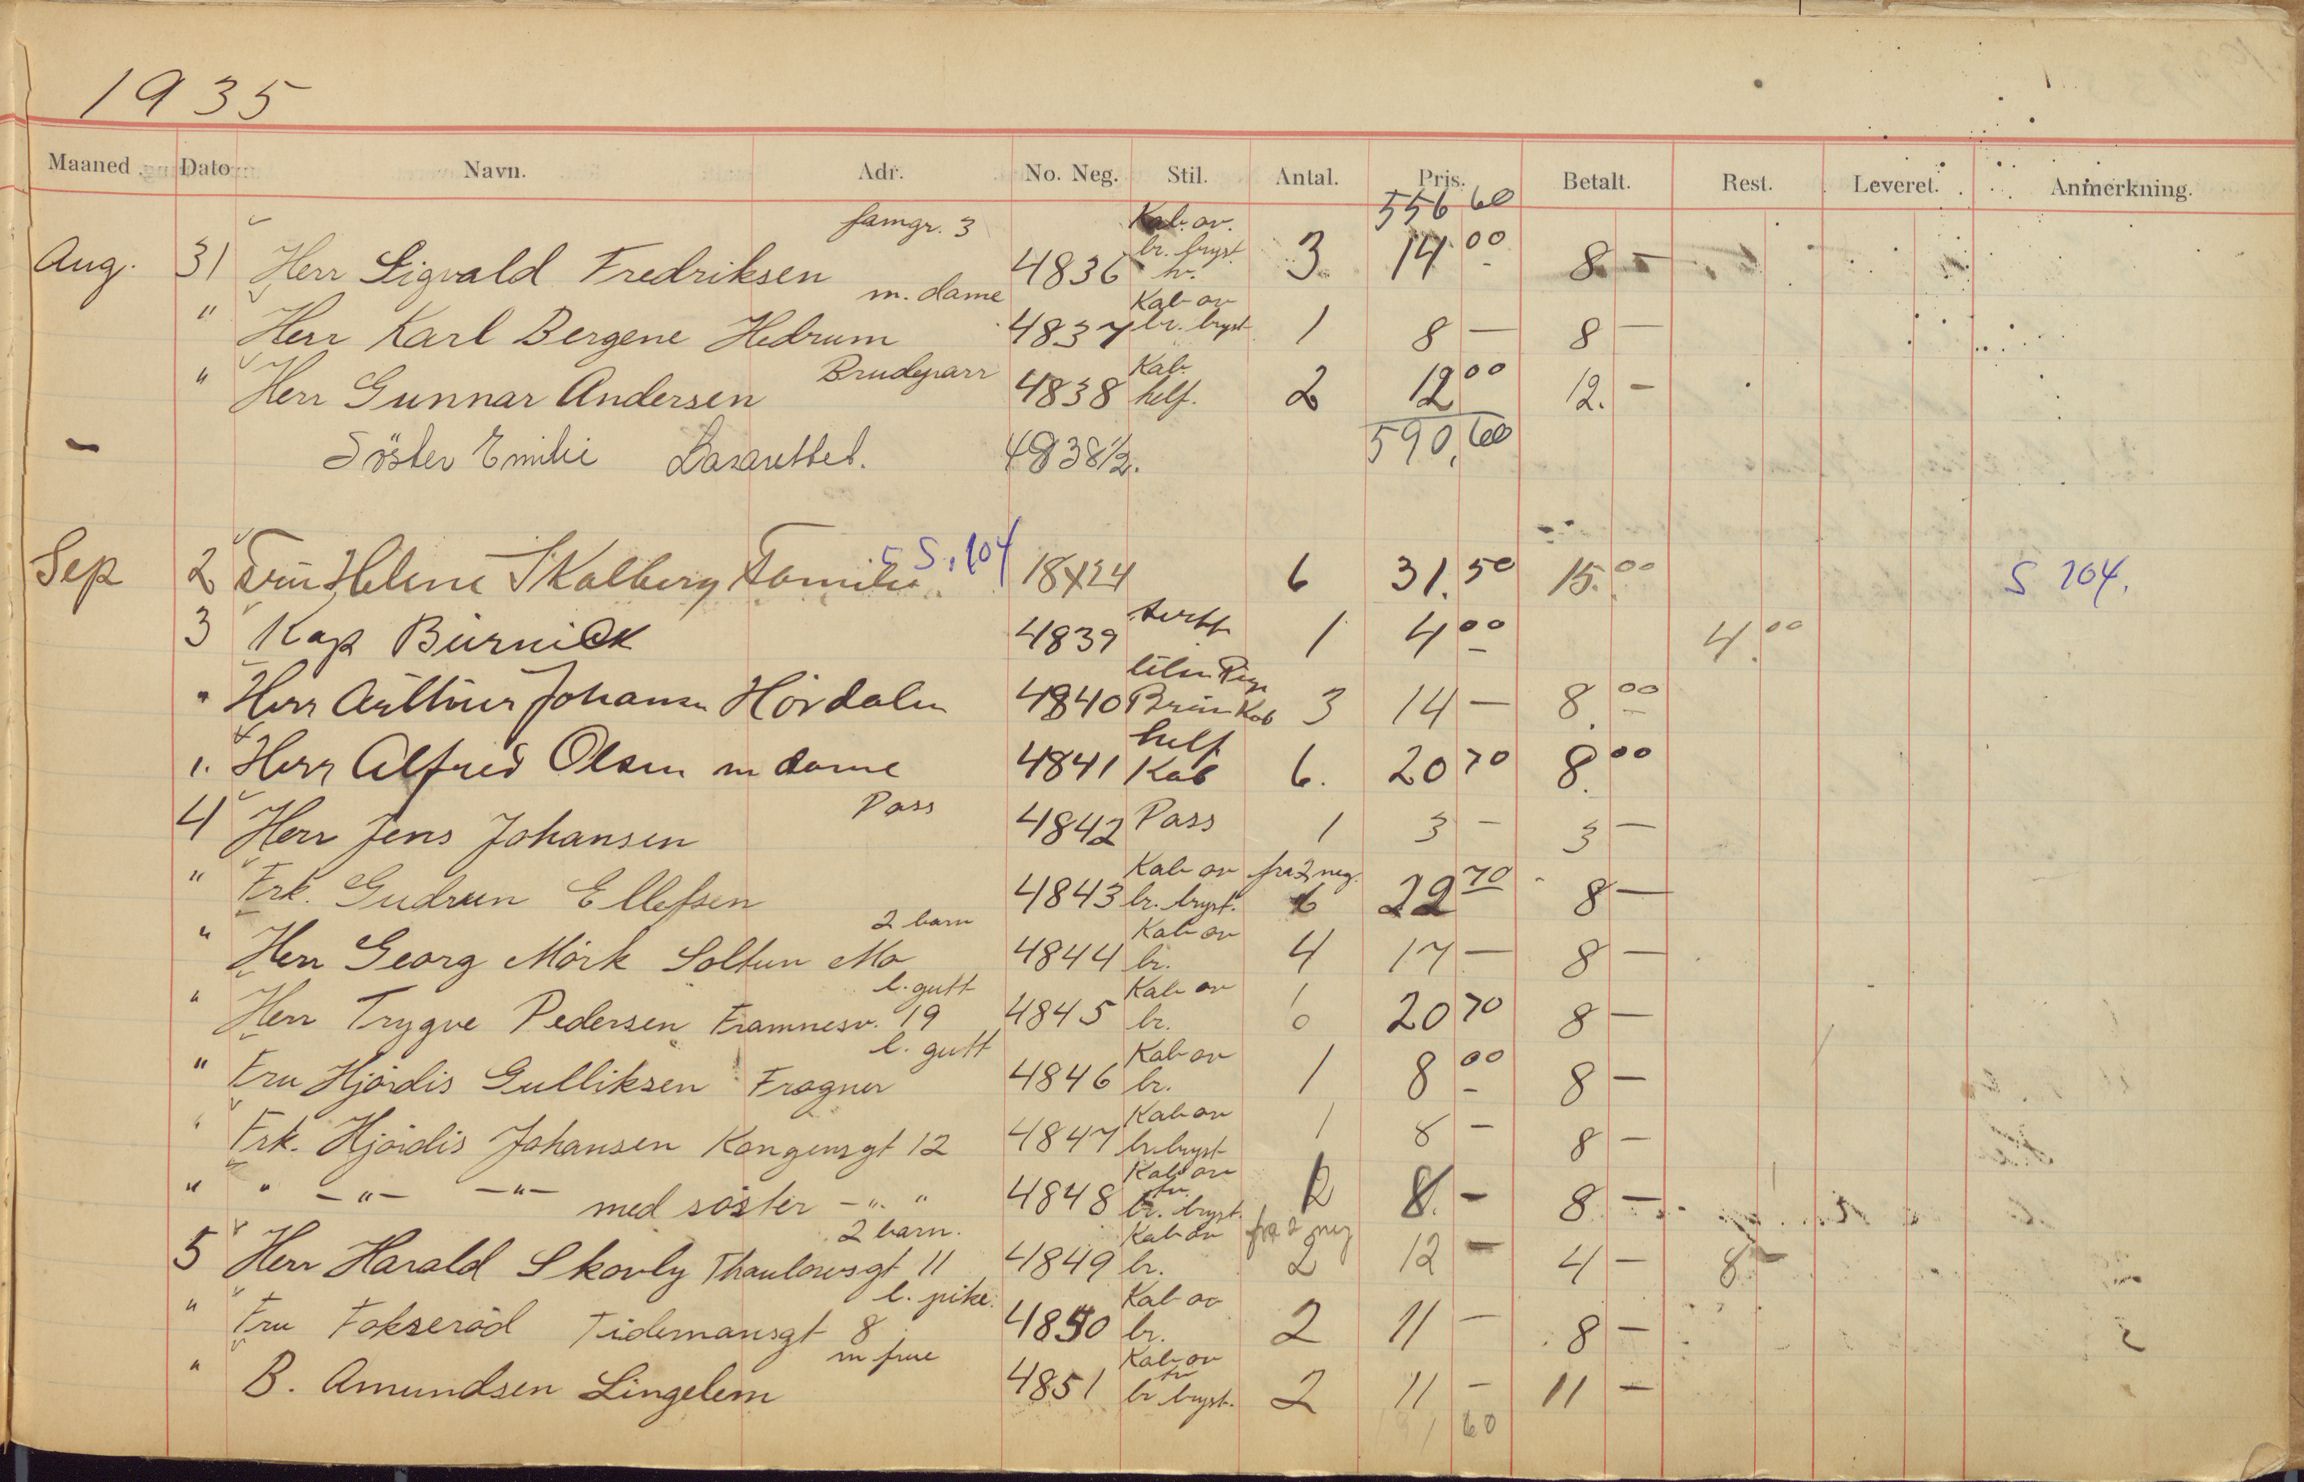 1935
Maaned Dato Navn. Adr. No. Neg. Stil. Antal. Pris. Betalt. Rest. Leveret. Anmerkning.
556 60
famgr. 3 Kab. ov.
Aug. 31 Herr Sigvald Fredriksen 4836 br. bryst. 3 14 00 8 -
m. dame Kab ov
" Herr Karl Bergene Hedrum 4837 br. bryst 1 8 - 8 -
Brudeparr Kab.
" Herr Gunnar Andersen 4838 helf. 2 12 00 12. -
- Söster Emilie Lasarettet. 4838 1/2. 590,60
Sep 2 Frü Helene Skalberg Familie S. 104 18x24 6 31.50 15.00 S 104.
3 Kap Bürnick 4839 1 4 00 4.00
" Herr Arthur Johansen Hördalen 4840 Brün Kab 3 14 - 8.00
helf
". Herr Alfred Olsen m dame 4841 Kab 6. 20 70 8.00
Pass
4 Herr Jens Johansen 4842 Pass 1 3 - 3 -
Kab ov fra 2 neg.
" Frk. Gudrun Ellefsen 4843 br. bryst. 6 22 70 8 -
2 barn Kab ov
" Herr Georg Mörk Soltun Mo 4844 br. 4 17 - 8 -
l. gutt Kab ov
" Herr Trygve Pedersen Framnesv. 19 4845 br. 6 20 70 8 -
l. gutt Kab ov
" Fru Hjördis Gulliksen Fragner 4846 br. 1 8 00 8 -
Kab ov
" Frk. Hjördis Johansen Kongensgt 12 4847 br. bryst 1 8 - 8 -
Kab ov
" " -"- -"- med söster -". " 4848 br. bryst. 2 8. - 8 -
2 barn. Kab ov fra 2 neg
5 Herr Harald Skovly Thaulowsgt 11 4849 br. 2 12 - 4 - 8 -
l. pike. Kab ov
" Fru Fokseröd Tidemansgt 8 4850 br. 2 11 - 8 -
m frue Kab ov
" B. Amundsen Lingelem 4851 br bryst. 2 11 - 11 -
60